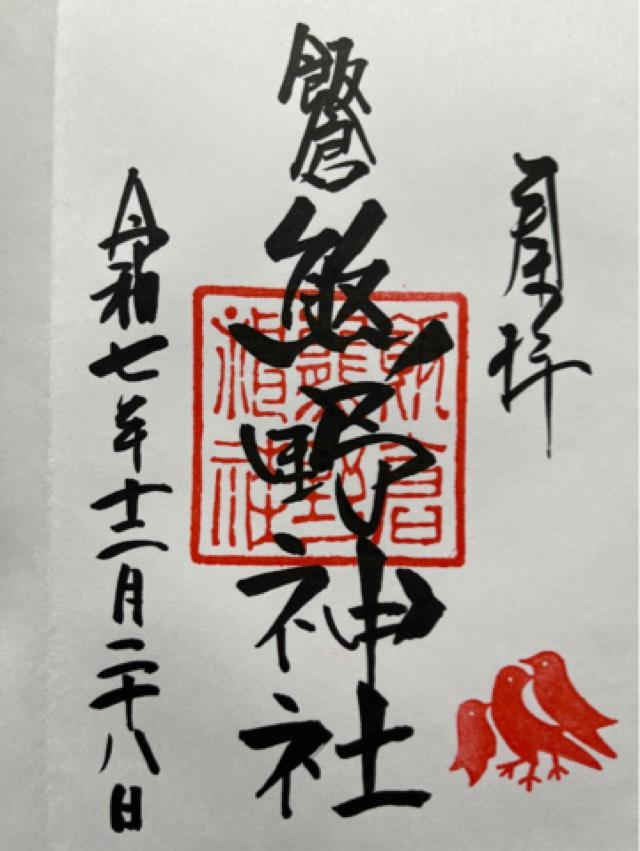 奉拝
飯倉
熊野神社
飯倉
熊野
神社
令和七年十二月二十八日